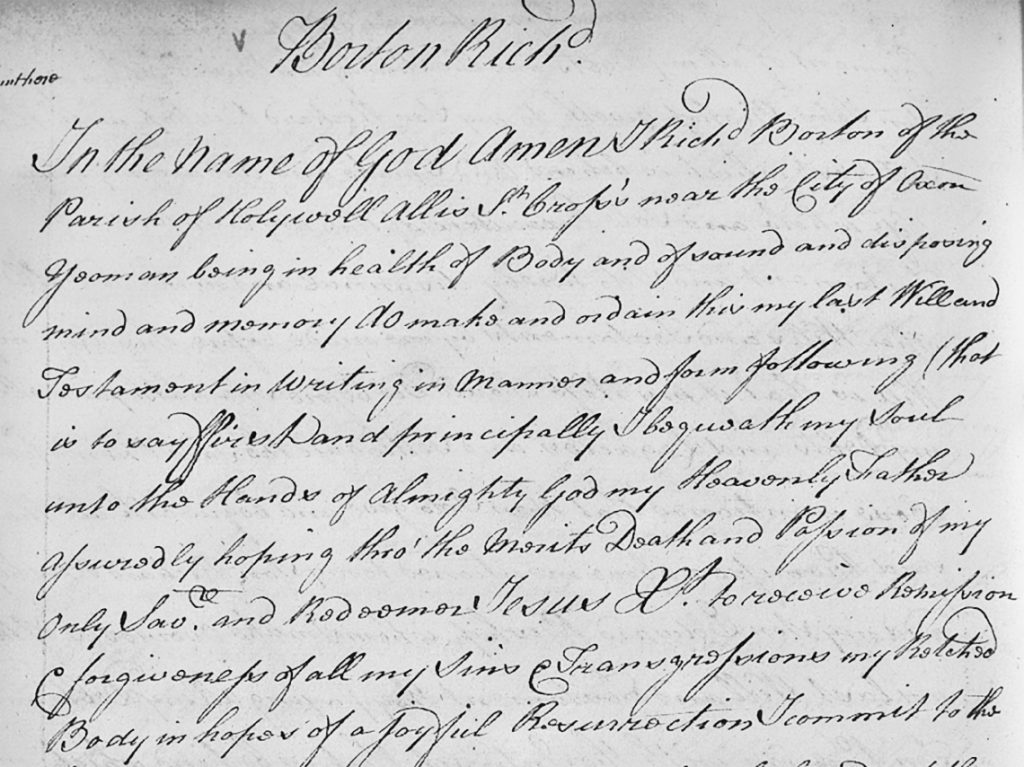 Borton Richd.
In the Name of God Amen I Richd Borton of the
Parish of Holywell Allis St. Cross's near the City of Oxon
Yeoman being in health of Body and of sound and disposing
mind and memory do make and ordain this my last Will and
Testament in Writing in Manner and form following (that
is to say ffirst and principally I bequeath my Soul
unto the Hands of Almighty God my Heavenly Father
assuredly hoping thro' the Merits Death and Passion of my
Only Savr. and Redeemer Jesus Xt. to receive Remission
& forgiveness of all my Sins & Transgressions my Retched
Body in hopes of a Joyful Resurrection I commit to the